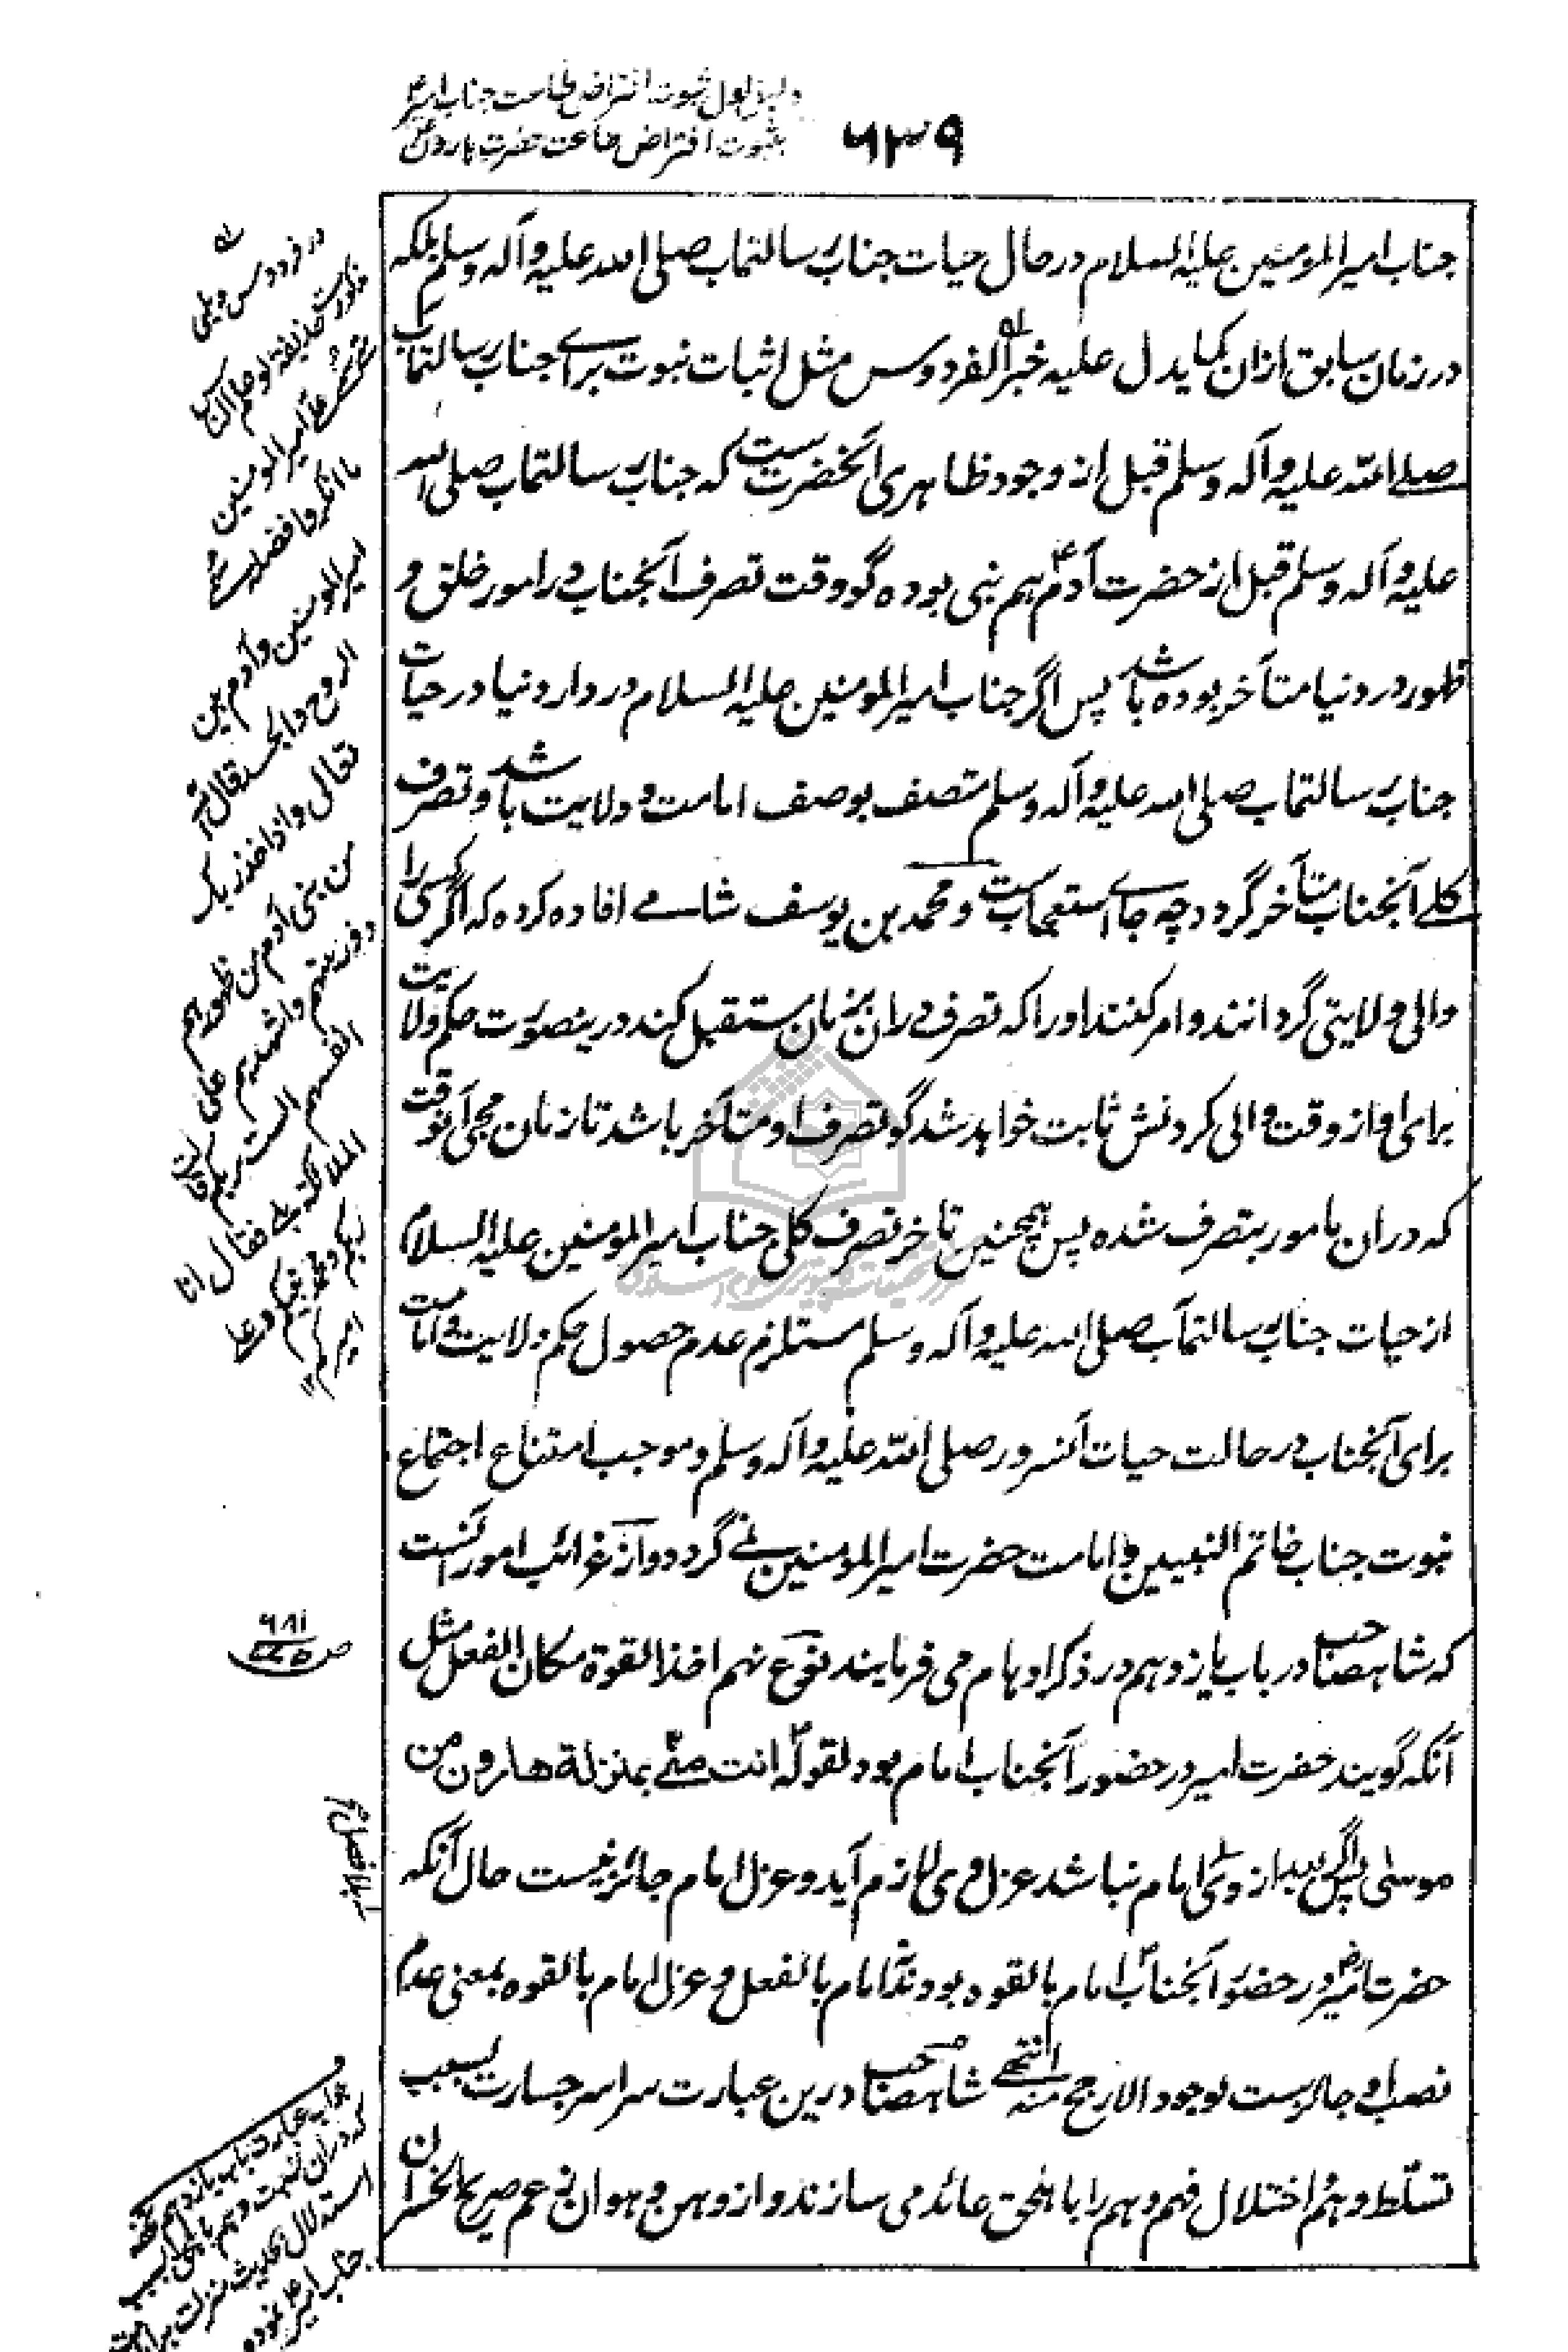 دلیل اول ثبوت افتراض طاعت جناب امیر
۶۳۹
بثبوت افتراض طاعت حضرت هارون
جناب امیر المومنین علیه السلام در حال حیات جناب رسالتمآب صلی الله علیه وآله وسلم بلکه
در زمان سابق ازان کما یدل علیه خبر الفردوس مثل اثبات نبوت برای جناب رسالتمآب
صلی الله علیه وآله وسلم قبل از وجود ظاهری آنحضرت ست که جناب رسالتمآب صلی الله
علیه وآله وسلم قبل از حضرت آدم ع هم نبی بوده گو وقت تصرف آنجناب در امور خلق و
ظهور در دنیا متأخر بوده باشد پس اگر جناب امیر المومنین علیه السلام در دار دنیا در حیات
جناب رسالتمآب صلی الله علیه وآله وسلم متصف بوصف امامت و ولایت باشد و تصرف
کلی آنجناب متأخر گردد چه جای استعجاب ست و محمد بن یوسف شامی افاده کرده که اگر کسی را
والی ولایتی گردانند و امر کنند او را که تصرف دران بزمان مستقبل کند درینصورت حکم ولایت
برای او از وقت والی کردنش ثابت خواهد شد گو تصرف او متأخر باشد تا زمان مجی آنوقت
که دران مامور بتصرف شده پس همچنین تاخر تصرف کلی جناب امیر المومنین علیه السلام
از حیات جناب رسالتمآب صلی الله علیه وآله وسلم مستلزم عدم حصول حکم ولایت و امامت
برای آنجناب در حالت حیات آنسرور صلی الله علیه وآله وسلم و موجب امتناع اجتماع
نبوت جناب خاتم النبیین و امامت حضرت امیر المومنین نمی گردد و از غرائب امور آنست
که شاهصاحب در باب یازدهم در ذکر اوهام می فرمایند نوع نهم اخذ القوة مکان الفعل مثل
آنکه گویند حضرت امیر در حضور آنجناب امام بود لقوله انت منی بمنزلة هارون من
موسی پس اگر بعد از وی امام نباشد عزل وی لازم آید و عزل امام جائز نیست حال آنکه
حضرت امیر در حضور آنجناب امام بالقوه بود نه امام بالفعل و عزل امام بالقوه بمعنی عدم
نصب او جائز ست لوجود الارجح منه انتهی شاهصاحب درین عبارت سراسر جسارت بسبب
تسلط وهم و اختلال فهم وهم را باهل حق عائد می سازند و از وهن و هوان زعم صریح الخسران
له
در فردوس دیلمی
مذکور ست حذیفة لو علم الناس
متی سمی علی امیر المومنین
ما انکروا فضله سمی
امیر المومنین وآدم بین
الروح والجسد قال الله
تعالی واذ اخذ ربک
من بنی آدم من ظهورهم
ذریتهم واشهدهم علی
انفسهم الست بربکم قالت
الملائکة بلی فقال انا
ربکم ومحمد نبیکم وعلی
امیرکم ۱۲
جواب عبارت باب یازدهم تحفه
که دران نسبت وهم باهل حق بسبب
استدلال بحدیث منزلت بر امامت
جناب امیر ع نموده